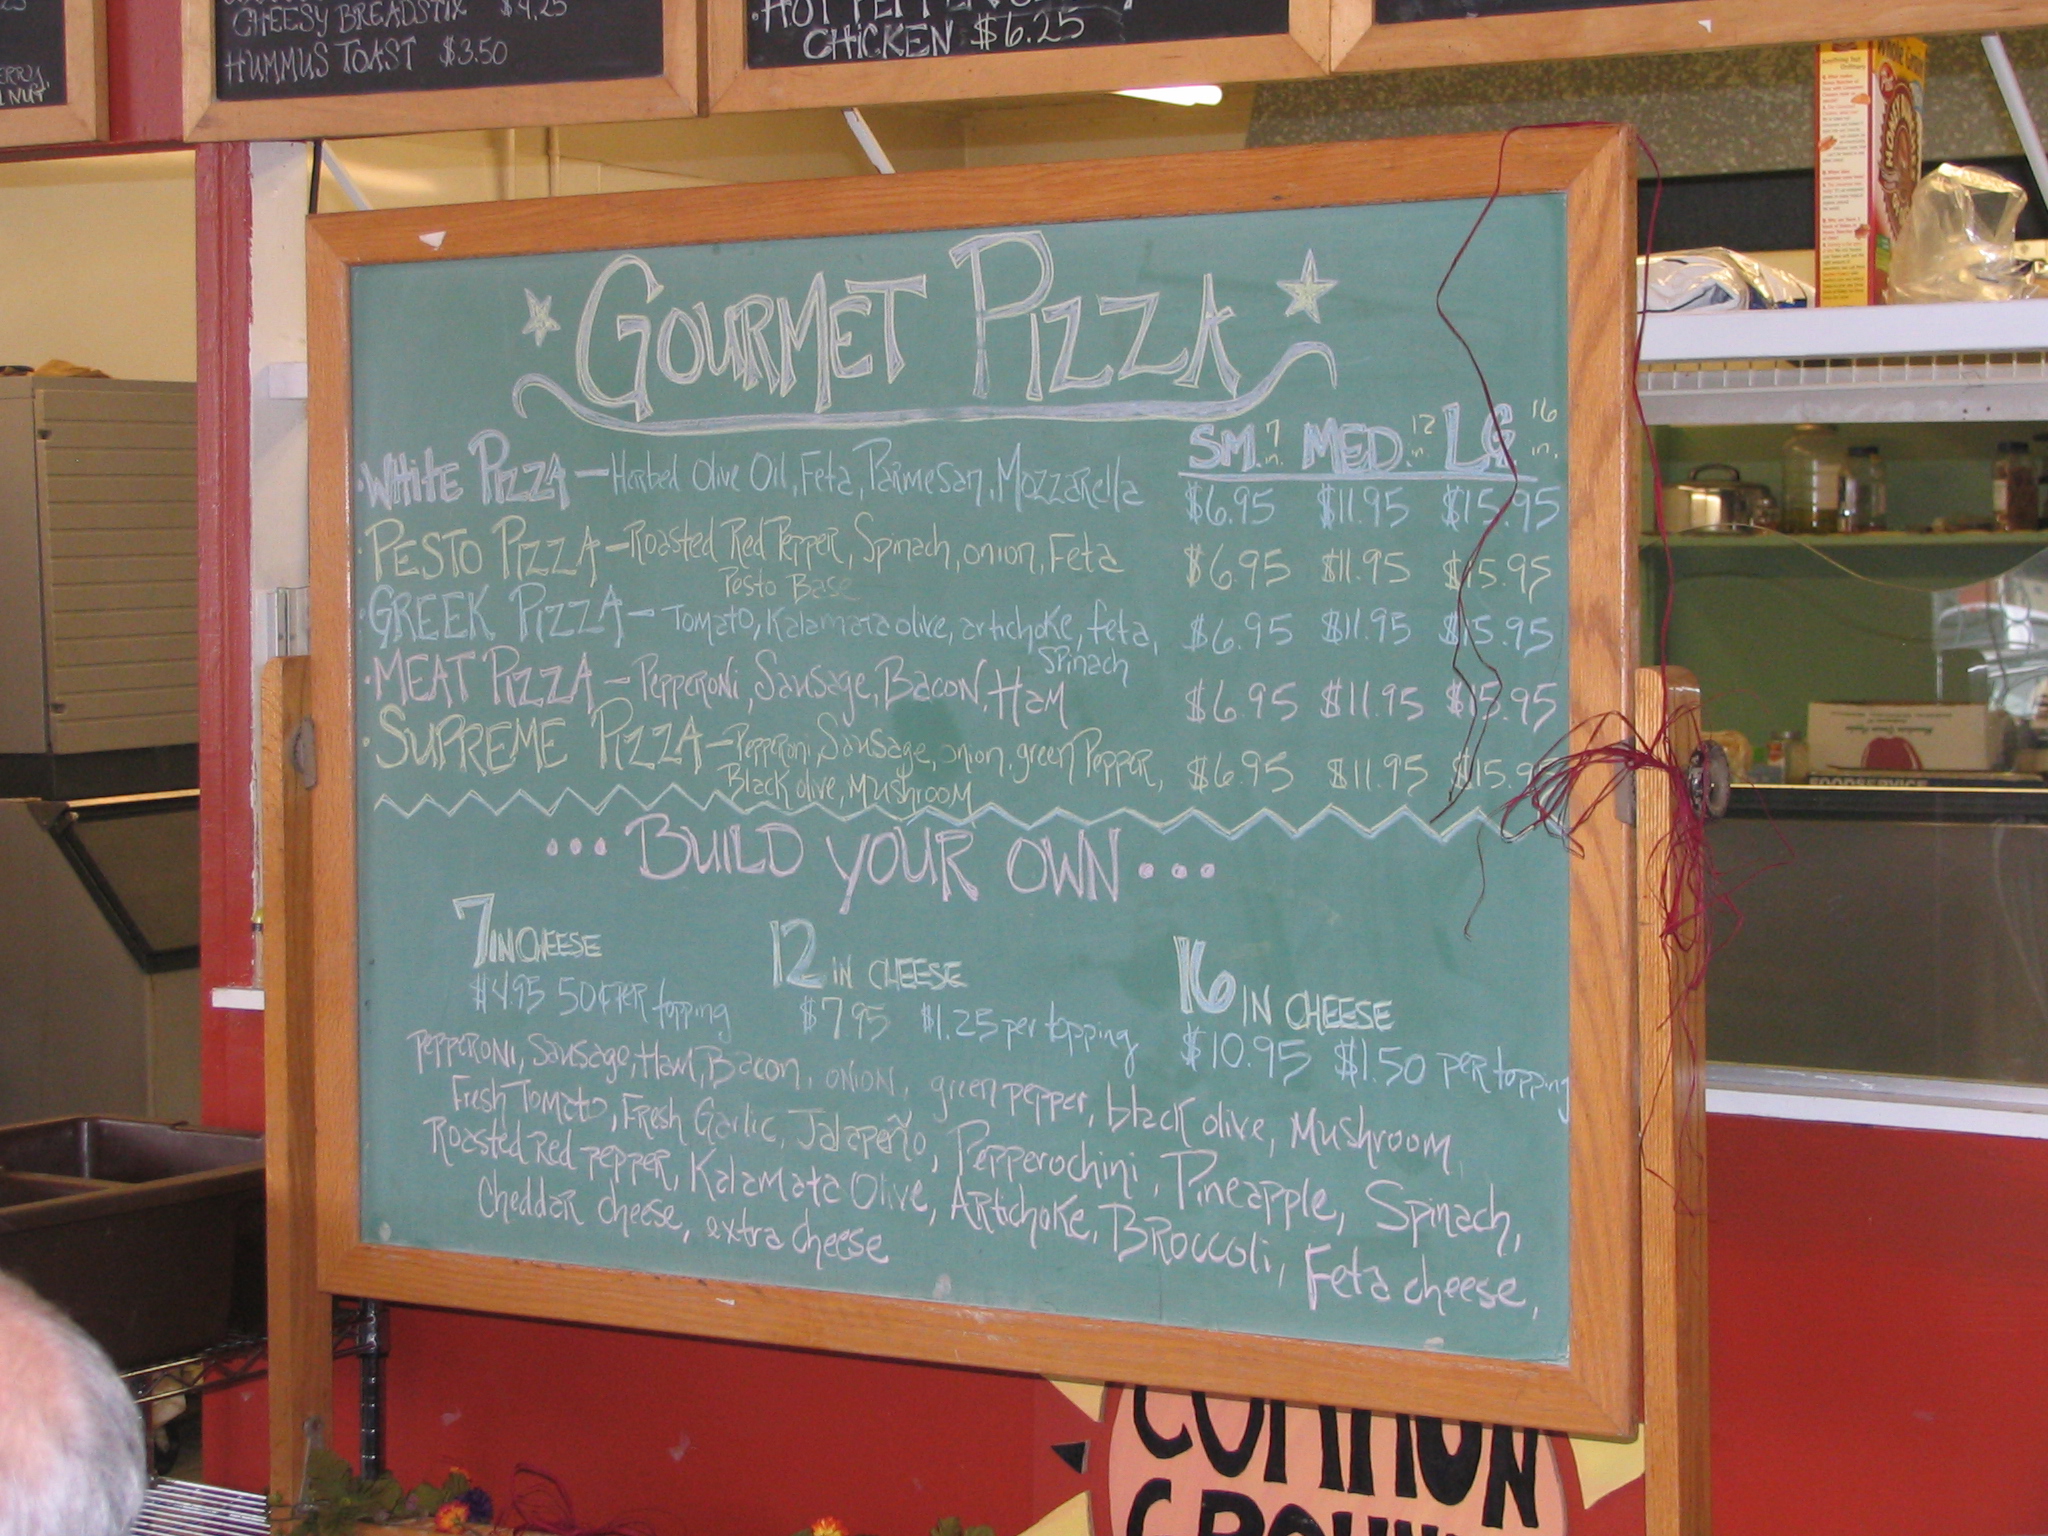 CHEESY BREADSTIX $4.25
HUMMUS TOAST $3.50
CHICKEN $6.25
GOURMET PIZZA
SM. 7 in. MED. 12 in. LG 16 in.
· WHITE PIZZA – Herbed Olive Oil, Feta, Parmesan, Mozzarella $6.95 $11.95 $15.95
· PESTO PIZZA – Roasted Red Pepper, Spinach, onion, Feta $6.95 $11.95 $15.95
Pesto Base
· GREEK PIZZA – Tomato, Kalamata olive, artichoke, feta, $6.95 $11.95 $15.95
Spinach
· MEAT PIZZA – Pepperoni, Sausage, Bacon, Ham $6.95 $11.95 $15.95
· SUPREME PIZZA – Pepperoni, Sausage, onion, green Pepper, $6.95 $11.95 $15.9
Black olive, Mushroom
... BUILD YOUR OWN ...
7 IN CHEESE
$4.95 50¢ PER topping
12 IN CHEESE
$7.95 $1.25 per topping
16 IN CHEESE
$10.95 $1.50 per topping
Pepperoni, Sausage, Ham, Bacon, onion, green pepper, black olive, Mushroom,
Fresh Tomato, Fresh Garlic, Jalapeño, Pepperochini, Pineapple, Spinach,
Roasted Red pepper, Kalamata Olive, Artichoke, Broccoli, Feta cheese,
Cheddar cheese, extra cheese
COMMON
Whole Grain
FOODSERVICE